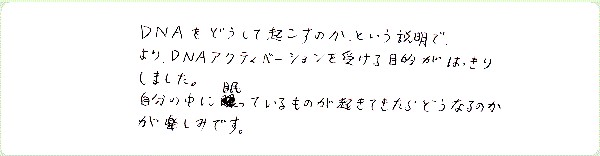 DNAをどうして起こすのか、という説明で、
より、DNAアクティベーションを受ける目的がはっきり
しました。
自分の中に眠っているものが起きてきたらどうなるのか
が楽しみです。